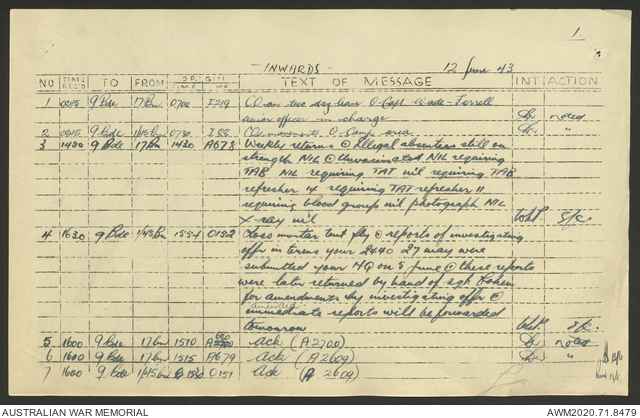 1.
- INWARDS - 12 June 43
NO TIME REC'D TO FROM ORIGIN TIME NO TEXT OF MESSAGE INT ACTION
1 0845 9 Bde 17 Bn 0700 I219 CO on two day leave @ Capt Wade-Ferrell
senior officer in charge noted
2 0845 9 Bde 0730 I58 Co movements @ Camp area "
3 1430 9 Bde 17 Bn 1430 A678 Weekly returns @ Illegal absentees still on
strength NIL @ Unvaccinated NIL requiring
TAB NIL requiring TAT nil requiring TAB
refresher 14 requiring TAT refresher 11
requiring blood group nil photograph NIL
X-ray nil
4 1630 9 Bde 1/45 Bn 1554 O152 Loss mortar fly @ reports of investigating
offr in terms your 2440 27 may were
submitted your HQ on 5 June @ these reports
were later returned by hand of sgt
for amendments by investigating offr @
amended
immediate reports will be forwarded
tomorrow
5 1600 9 Bde 17 Bn 1510 680 Ack (A2700) noted
6 1600 9 Bde 17 Bn 1515 A679 Ack (A2609) "
7 1600 9 Bde 1/45 Bn 1530 O151 Ack (A 2609)
AUSTRALIAN WAR MEMORIAL AWM2020.71.8479